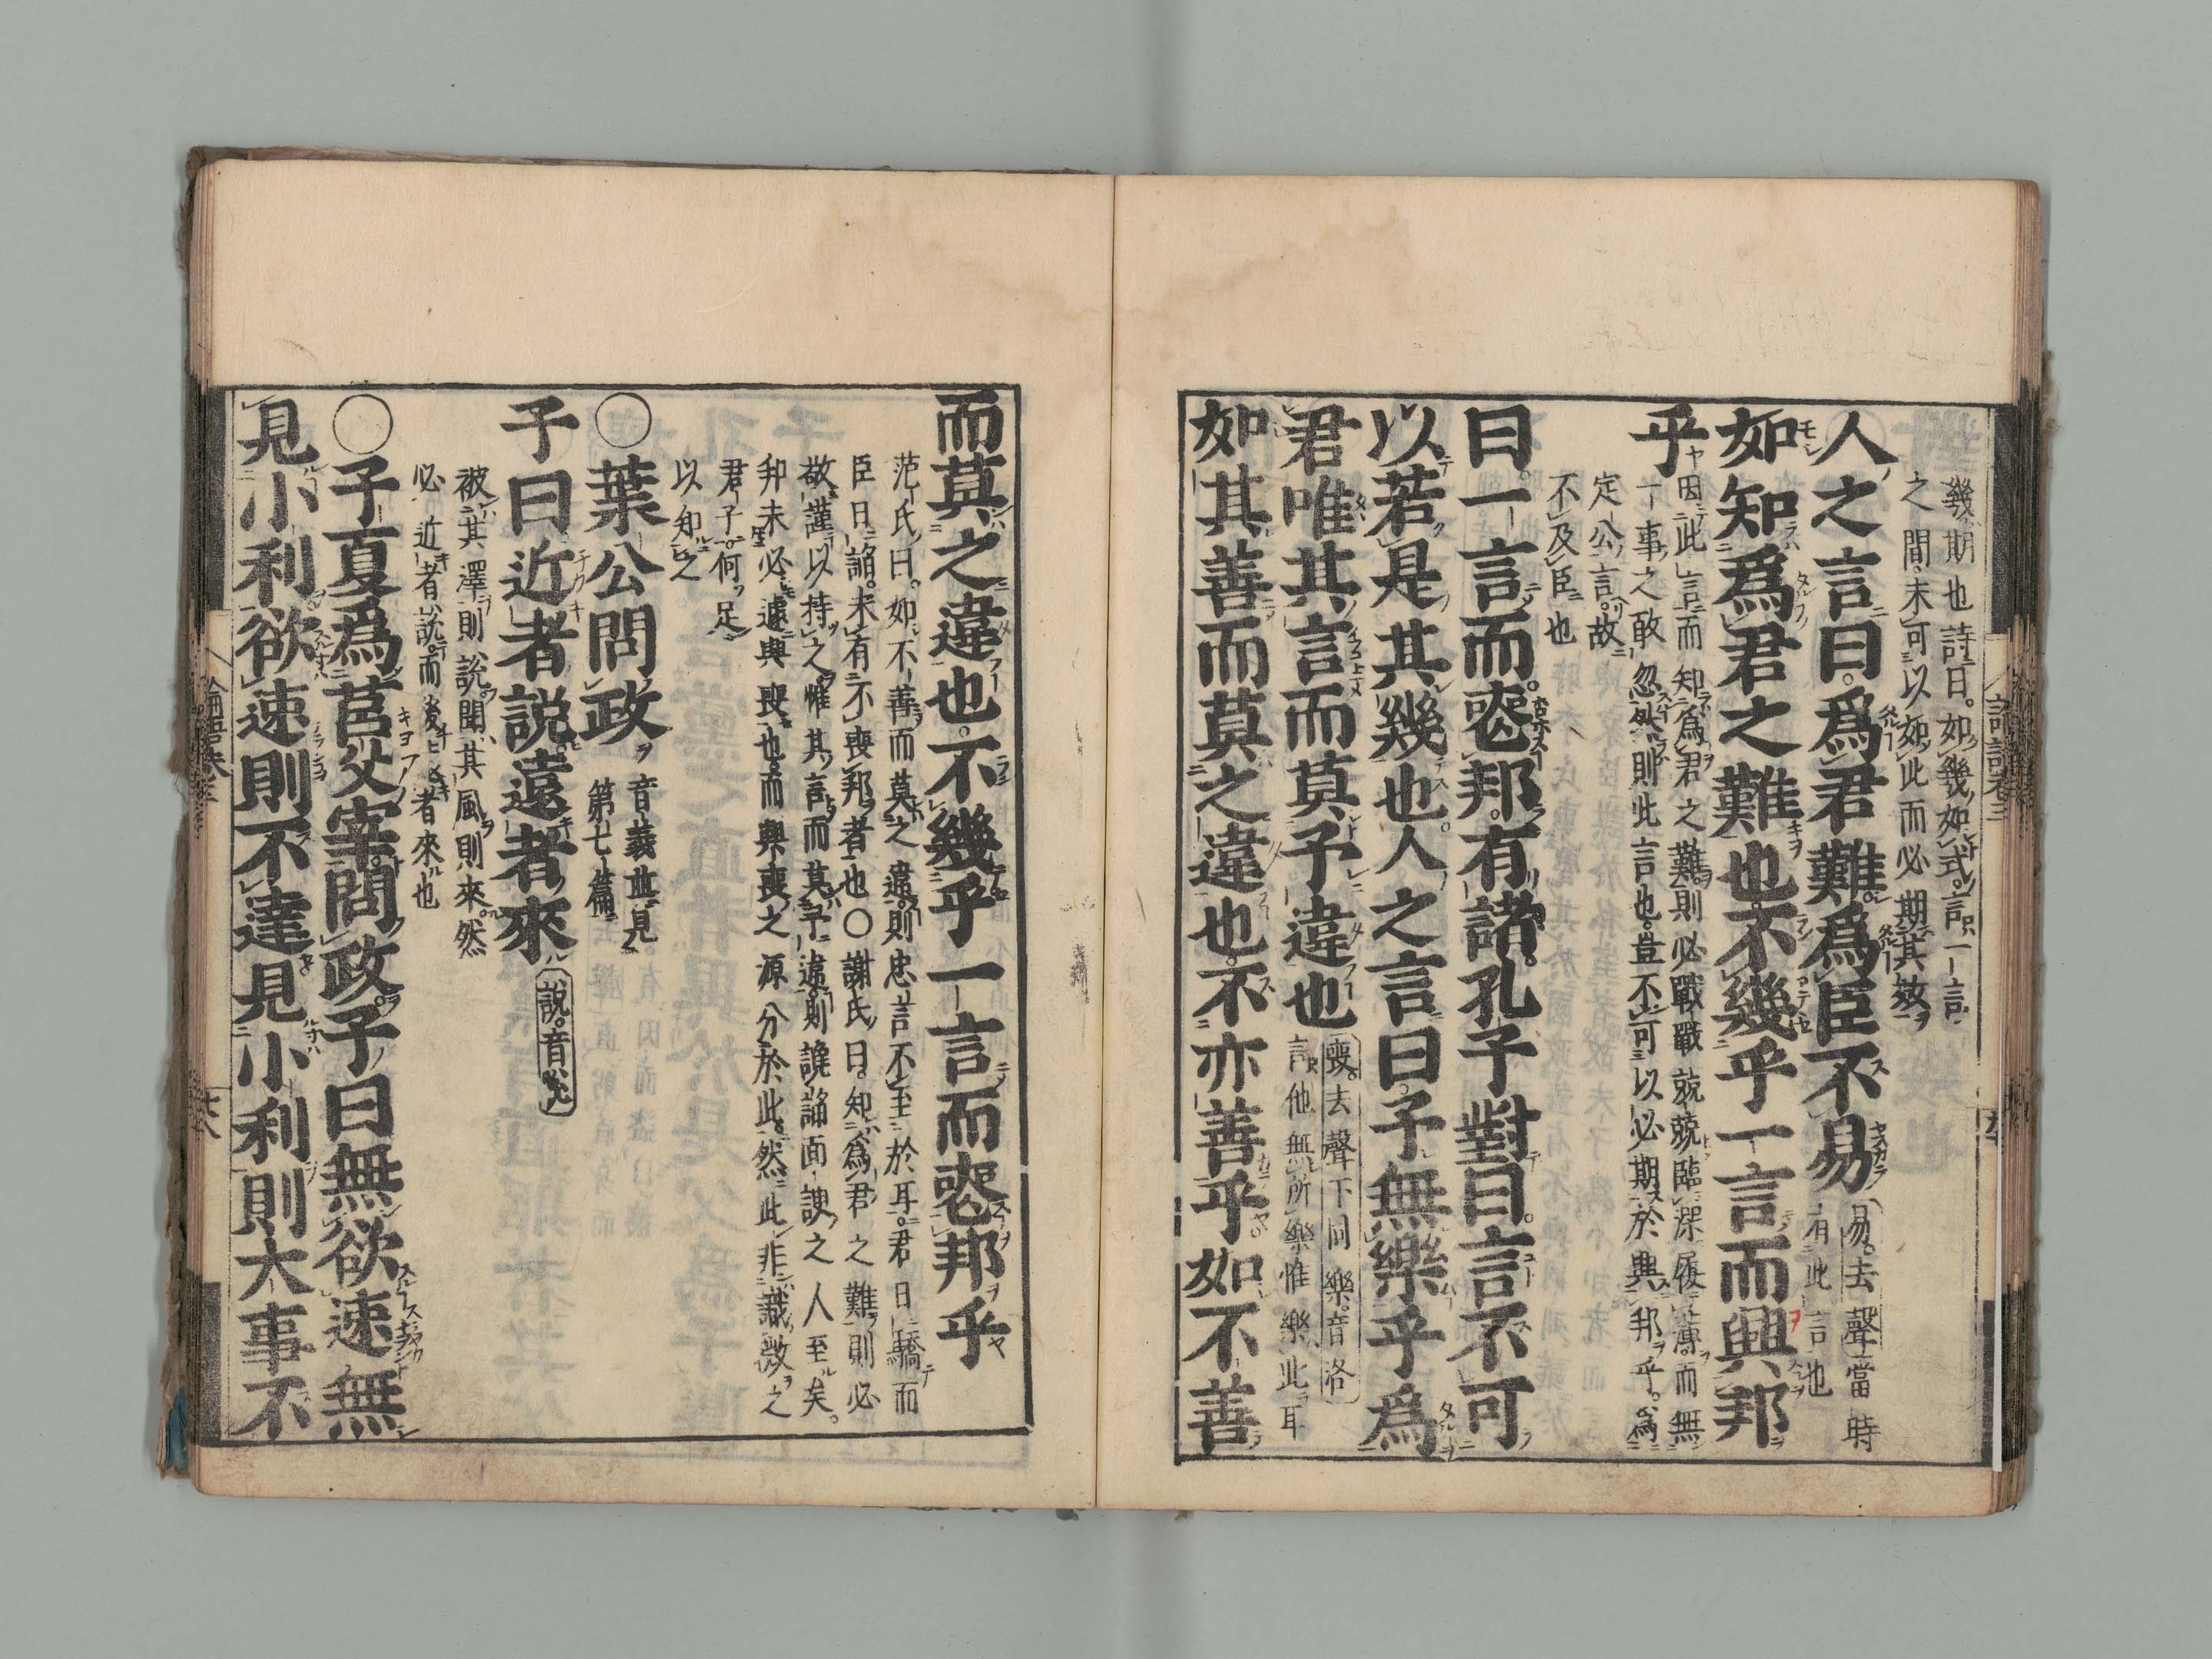 幾期也詩曰如幾如式言一言
之間未可以如此而必期其效
人之言曰爲君難爲臣不易
易去聲當時
有此言也
如知爲君之難也不幾乎一言而興邦
乎
因此言而知爲君之難則必戰戰兢兢臨深履薄而無
一事之敢忽然則此言也豈不可以必期於興邦乎爲
定公言故
不及臣也
曰一言而喪邦有諸孔子對曰言不可
以若是其幾也人之言曰予無樂乎爲
君唯其言而莫予違也
喪去聲下同樂音洛
言他無所樂惟樂此耳
如其善而莫之違也不亦善乎如不善
而莫之違也不幾乎一言而喪邦乎
范氏曰如不善而莫之違則忠言不至於耳君日驕而
臣日諂未有不喪邦者也○謝氏曰知爲君之難則必
敬謹以持之惟其言而莫予違則讒諂面諛之人至矣
邦未必遽興喪也而興喪之源分於此然此非識微之
君子何足
以知之
○葉公問政
音義並見
第七篇
子曰近者說遠者來
說音悅
被其澤則說聞其風則來然
必近者說而後遠者來也
○子夏爲莒父宰問政子曰無欲速無
見小利欲速則不達見小利則大事不
論語卷三
十八